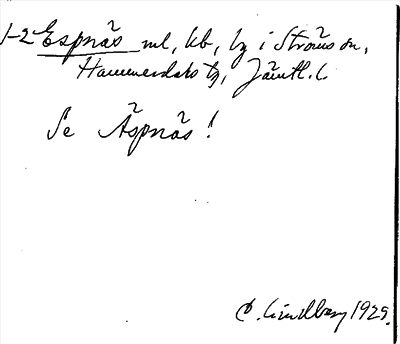 1-2 Espnäs ml, kb, by i Ströms sn,
Hammerdals tg, Jämtl. l.
Se Äspnäs!
C. Lindberg 1925.